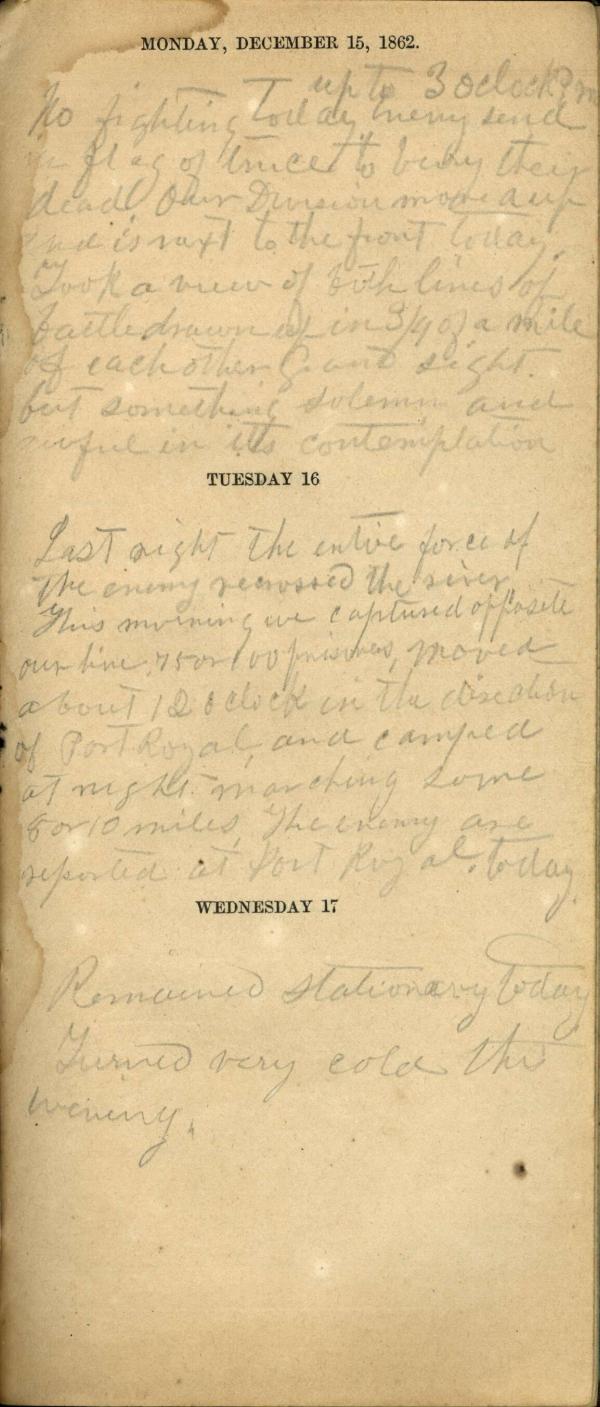 MONDAY, DECEMBER 15, 1862.
up to 3 oclock P m
No fighting Today Enemy send
in flag of truce to bury their
dead Our Division moved up
and is next to the front today.
Took a view of both lines of
battle drawn up in 3/4 of a mile
of each other Grand sight.
but something solemn and
awful in its contemplation
TUESDAY 16
Last night the entire force of
the enemy recrossed the river
This morning we captured opposite
our line 75 or 100 prisoners, moved
about 12 oclock in the direction
of Port Royal, and camped
at night. marching some
8 or 10 miles, The enemy are
reported at Port Royal. today.
WEDNESDAY 17
Remained stationary today
Turned very cold this
evening.